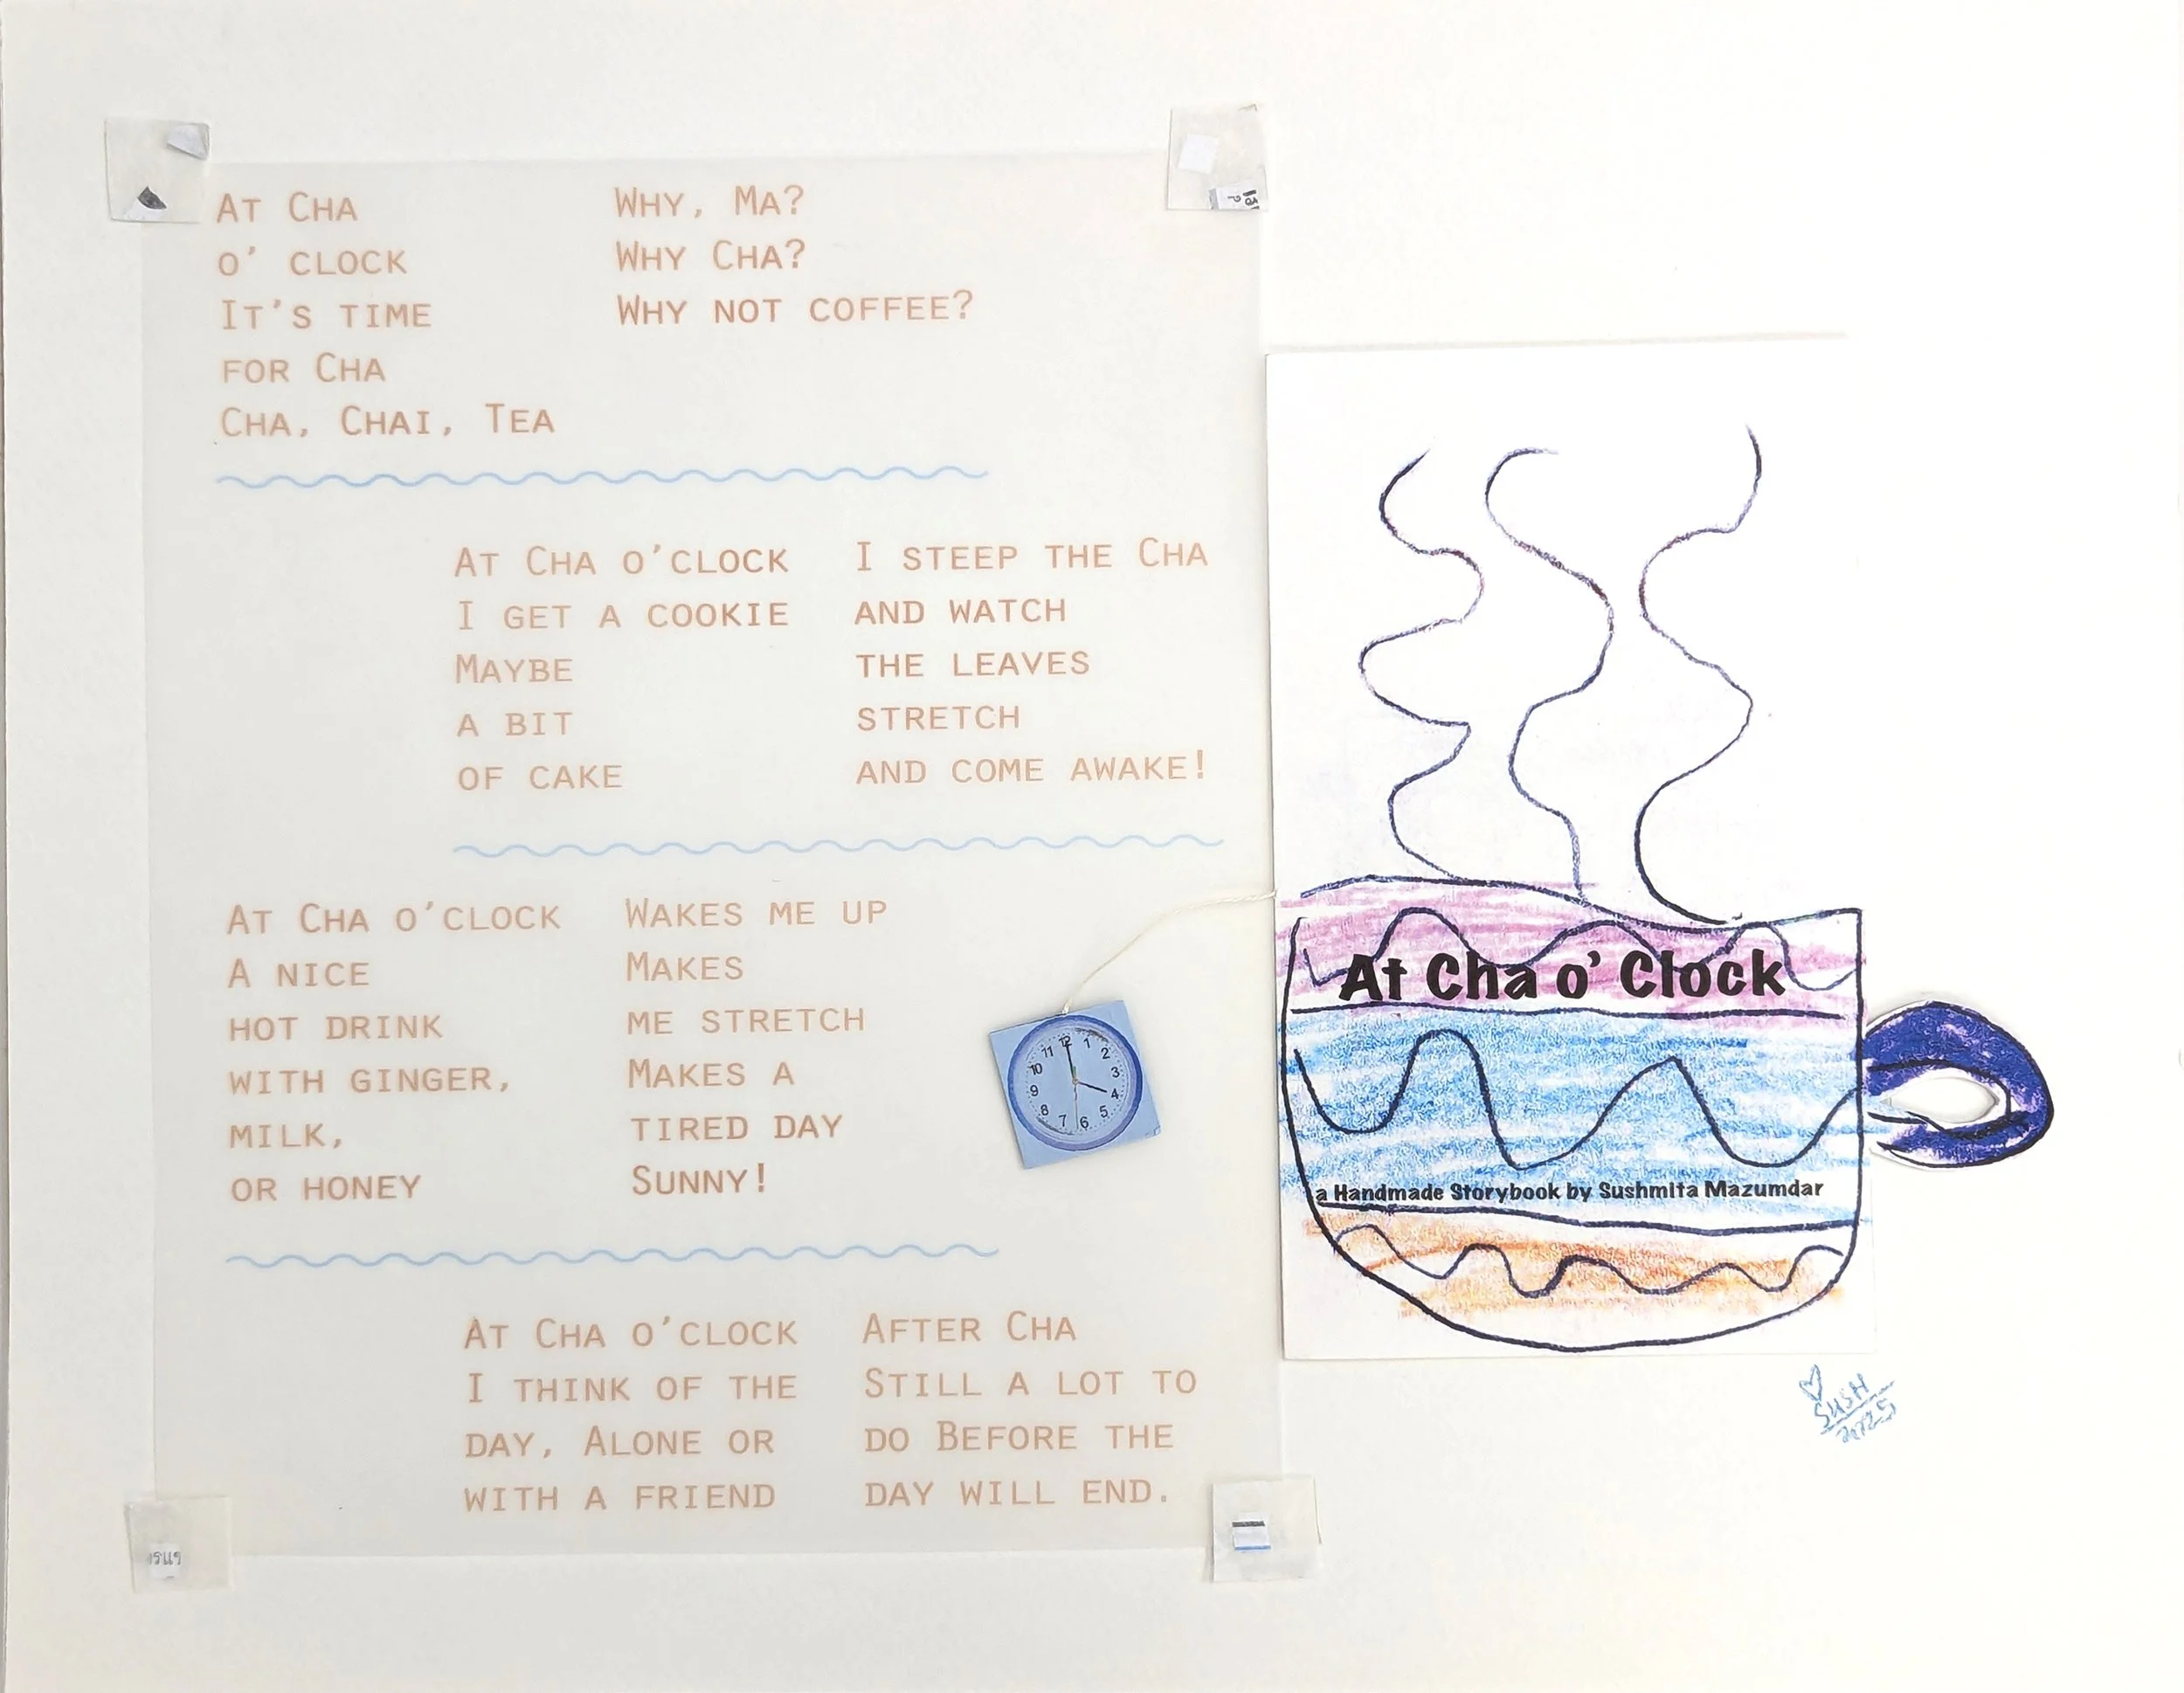 At Cha
o' clock
It's time
for Cha
Cha, Chai, Tea
Why, Ma?
Why Cha?
Why not coffee?
At Cha o'clock
I get a cookie
Maybe
a bit
of cake
I steep the Cha
and watch
the leaves
stretch
and come awake!
At Cha o'clock
A nice
hot drink
with ginger,
milk,
or honey
Wakes me up
Makes
me stretch
Makes a
tired day
Sunny!
At Cha o'clock
I think of the
day, Alone or
with a friend
After Cha
Still a lot to
do Before the
day will end.
11 12 1
10 2
9 3
8 4
7 6 5
At Cha o' Clock
a Handmade Storybook by Sushmita Mazumdar
Sush
2025